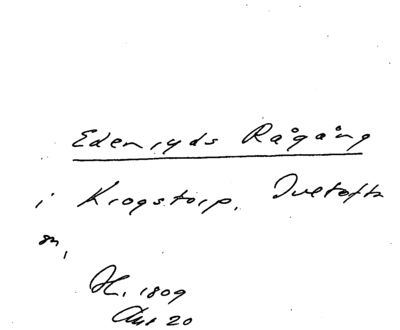 Edenryds Rågång
i Krogstorp, Ivetofta
sn,
H. 1809
20